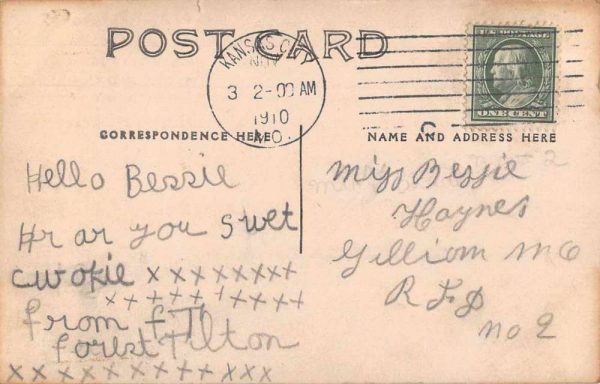 POST CARD
KANSAS CITY
NOV
3 2-00 AM
1910
MO.
U.S. POSTAGE
ONE CENT
CORRESPONDENCE HERE
NAME AND ADDRESS HERE
Hello Bessie
Hr ar you swet
cwokie x x x x x x x x
x x x x x x x x x x
from F. T.
Forest Tilton
x x x x x x x x x x x x x
Miss Bessie
Haynes
Gilliam Mo
R F D
no 2